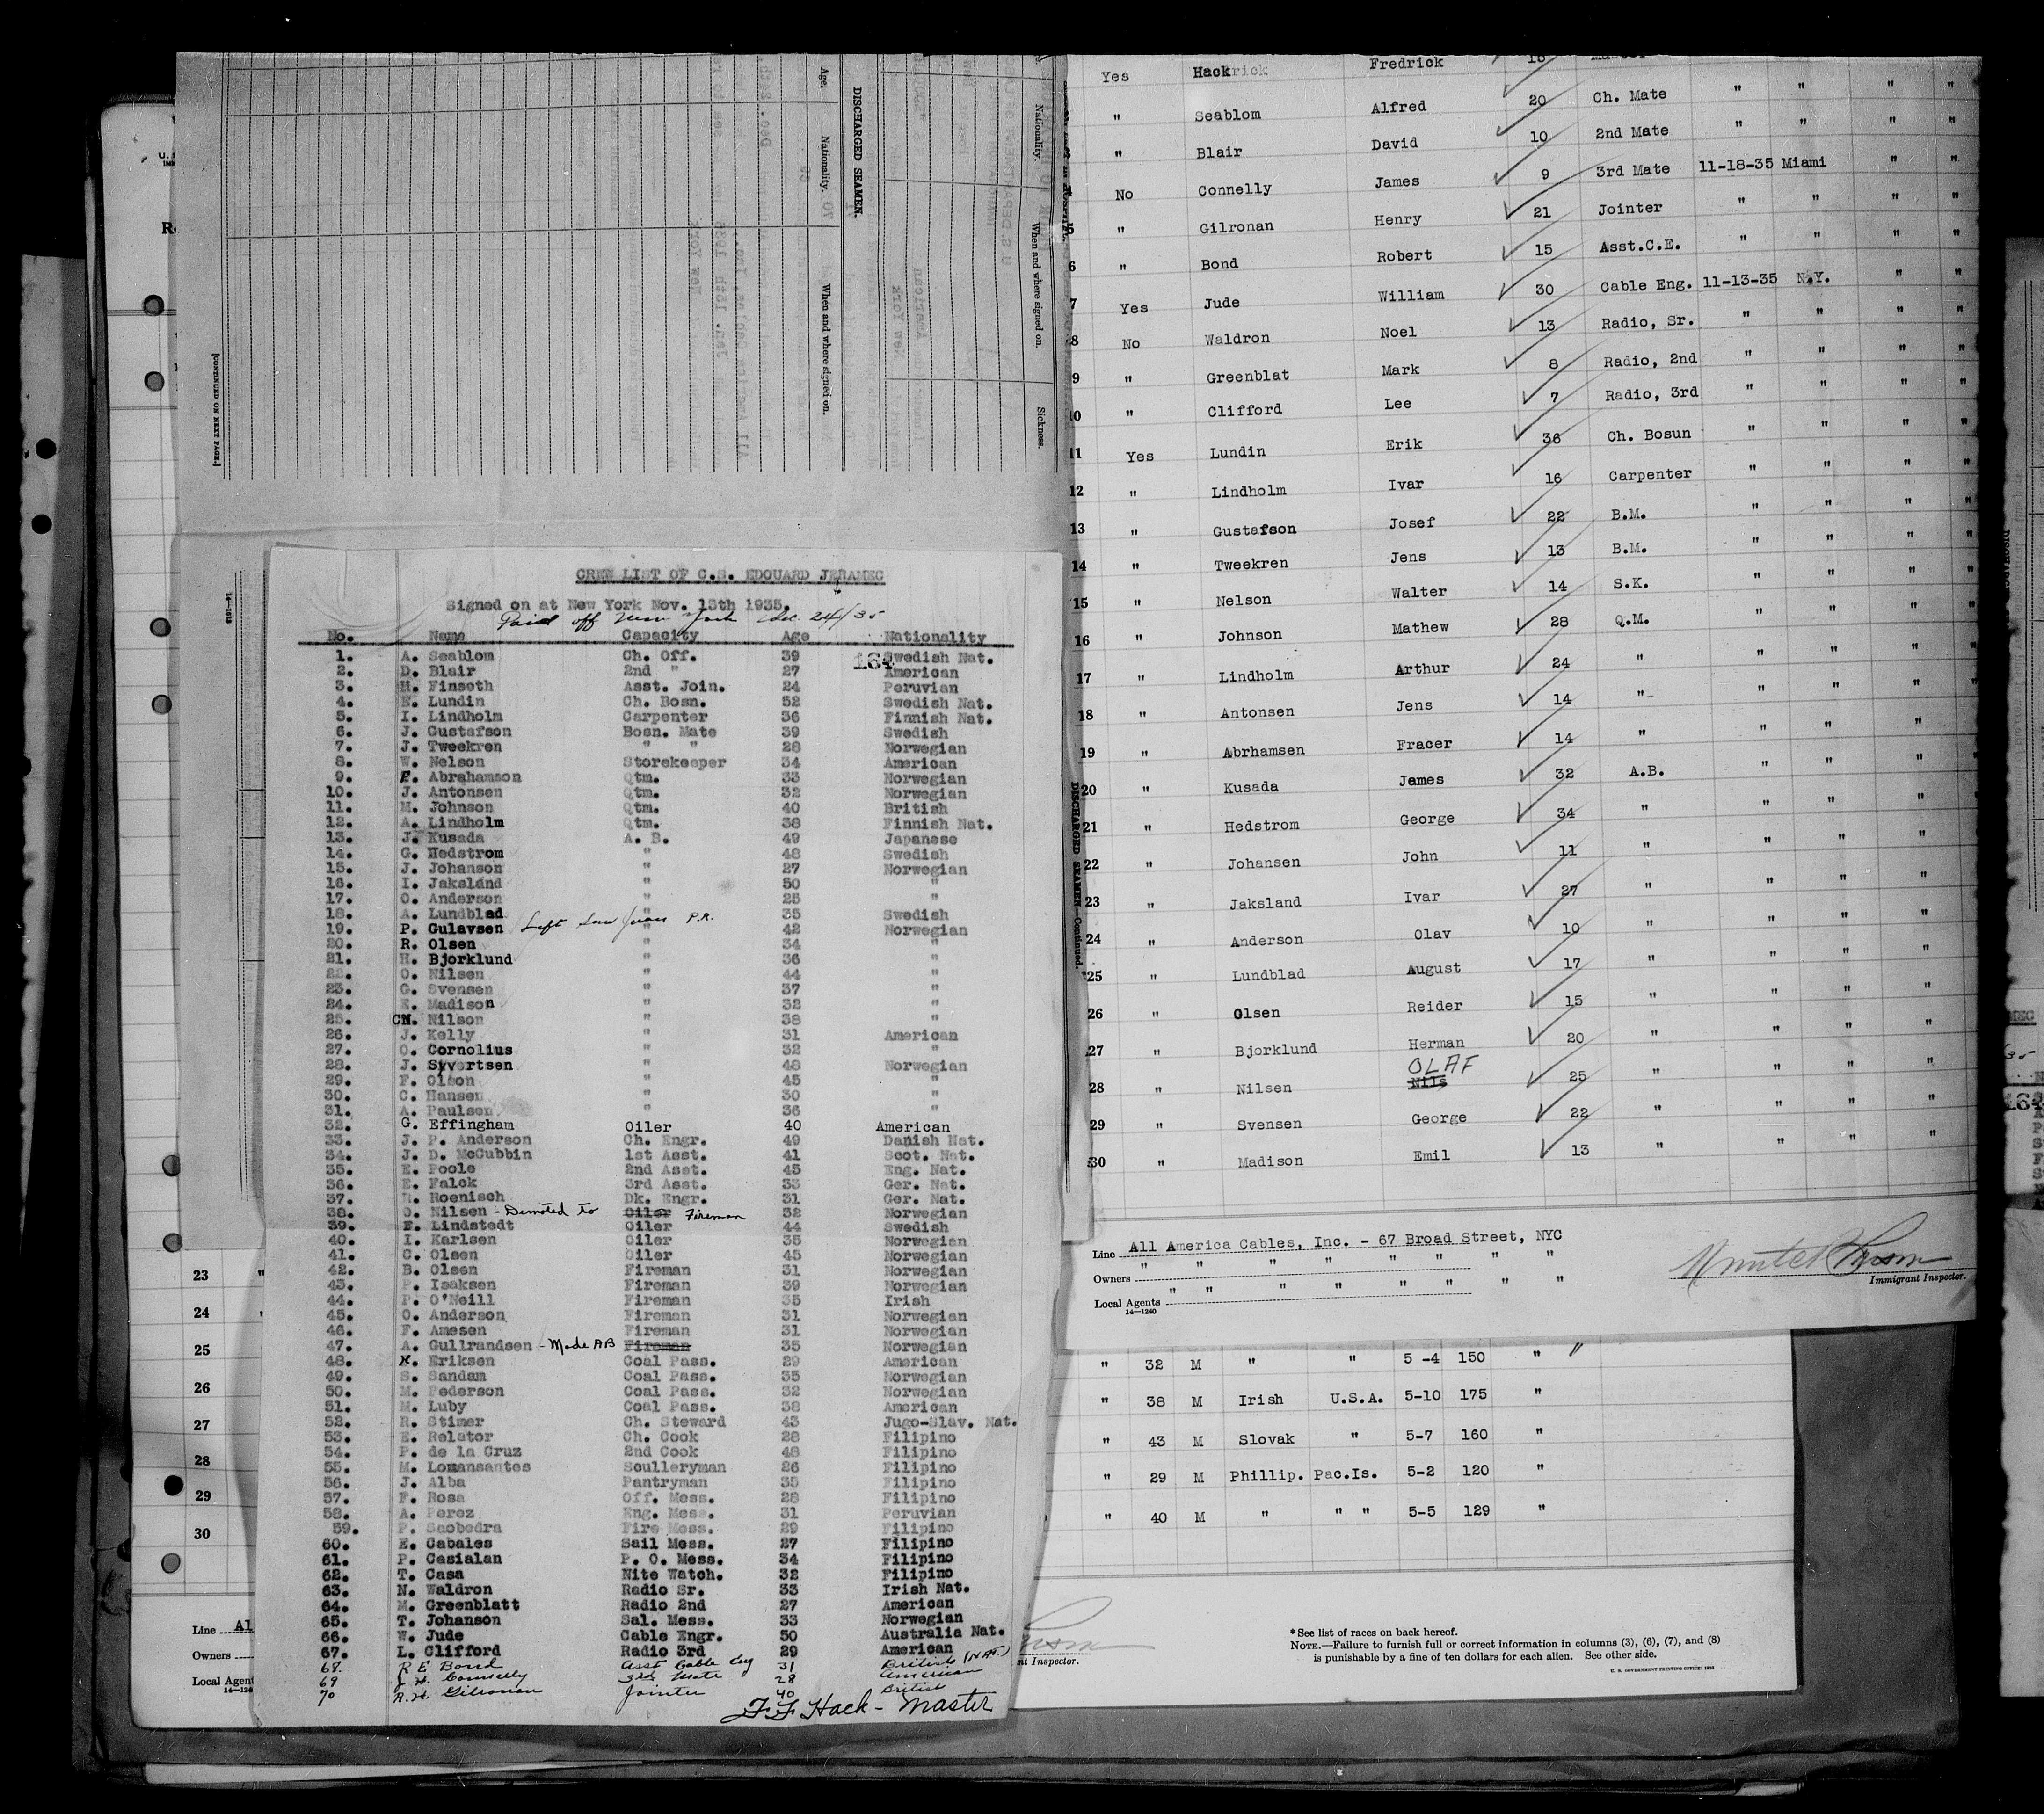 CREW LIST OF C.S. EDOUARD JERAMEC
Signed on at New York Nov. 13th 1935.
Paid off New York Dec. 24/35
No. Name Capacity Age Nationality
164
1. A. Seablom Ch. Off. 39 Swedish Nat.
2. D. Blair 2nd " 27 American
3. H. Finseth Asst. Join. 24 Peruvian
4. E. Lundin Ch. Bosn. 52 Swedish Nat.
5. I. Lindholm Carpenter 36 Finnish Nat.
6. J. Gustafson Bosn. Mate 39 Swedish
7. J. Tweekren " " 28 Norwegian
8. W. Nelson Storekeeper 34 American
9. F. Abrahamson Qtm. 33 Norwegian
10. J. Antonsen Qtm. 32 Norwegian
11. M. Johnson Qtm. 40 British
12. A. Lindholm Qtm. 38 Finnish Nat.
13. J. Kusada A. B. 49 Japanese
14. G. Hedstrom " 48 Swedish
15. J. Johanson " 27 Norwegian
16. I. Jaksland " 50 "
17. O. Anderson " 25 "
18. A. Lundblad " 35 Swedish
19. P. Gulavsen Left San Juan P.R. " 42 Norwegian
20. R. Olsen " 34 "
21. H. Bjorklund " 36 "
22. O. Nilsen " 44 "
23. G. Svensen " 37 "
24. E. Madison " 32 "
25. CN. Nilson " 38 "
26. J. Kelly " 31 American
27. O. Cornolius " 32 "
28. J. Syvertsen " 48 Norwegian
29. F. Olson " 45 "
30. C. Hansen " 30 "
31. A. Paulsen " 36 "
32. G. Effingham Oiler 40 American
33. J. P. Anderson Ch. Engr. 49 Danish Nat.
34. J. D. McCubbin 1st Asst. 41 Scot. Nat.
35. E. Poole 2nd Asst. 45 Eng. Nat.
36. E. Falck 3rd Asst. 33 Ger. Nat.
37. Roenisch Dk. Engr. 31 Ger. Nat.
38. O. Nilsen - Demoted to Oiler Fireman 32 Norwegian
39. E. Lindstedt Oiler 44 Swedish
40. I. Karlsen Oiler 35 Norwegian
41. C. Olsen Oiler 45 Norwegian
42. B. Olsen Fireman 31 Norwegian
43. P. Isaksen Fireman 39 Norwegian
44. P. O'Neill Fireman 35 Irish
45. O. Anderson Fireman 31 Norwegian
46. F. Amesen Fireman 31 Norwegian
47. A. Gullrandsen - Made AB Fireman 35 Norwegian
48. Eriksen Coal Pass. 29 American
49. S. Sandam Coal Pass. 35 Norwegian
50. M. Pederson Coal Pass. 32 Norwegian
51. M. Luby Coal Pass. 38 American
52. R. Stimer Ch. Steward 43 Jugo-Slav. Nat.
53. E. Relator Ch. Cook 28 Filipino
54. P. de la Cruz 2nd Cook 48 Filipino
55. M. Lomansantes Sculleryman 26 Filipino
56. J. Alba Pantryman 35 Filipino
57. F. Rosa Off. Mess. 28 Filipino
58. A. Perez Eng. Mess. 31 Peruvian
59. P. Saobedra Fire Mess. 29 Filipino
60. E. Cabales Sail Mess. 27 Filipino
61. P. Casialan P. O. Mess. 34 Filipino
62. T. Casa Nite Watch. 32 Filipino
63. N. Waldron Radio Sr. 33 Irish Nat.
64. M. Greenblatt Radio 2nd 27 American
65. T. Johanson Sal. Mess. 33 Norwegian
66. W. Jude Cable Engr. 50 Australia Nat.
67. L. Clifford Radio 3rd 29 American
68. R E Bond Asst Cable Eng 31 British (NAT.)
69 J. H. Connelly 3rd Mate 28 American
70 R. H. Gilronan Jointer 40 British
F F Hack - Master
Age. Nationality. When and where signed on.
DISCHARGED SEAMEN.
Nationality. When and where signed on. Sickness.
[CONTINUED ON NEXT PAGE.]
DISCHARGED SEAMEN—Continued.
Yes Hack Fredrick 15
" Seablom Alfred 20 Ch. Mate " " " "
" Blair David 10 2nd Mate " " " "
No Connelly James 9 3rd Mate 11-18-35 Miami " "
5 " Gilronan Henry 21 Jointer " " " "
6 " Bond Robert 15 Asst.C.E. " " " "
7 Yes Jude William 30 Cable Eng. 11-13-35 N.Y. " "
8 No Waldron Noel 13 Radio, Sr. " " " "
9 " Greenblat Mark 8 Radio, 2nd " " " "
10 " Clifford Lee 7 Radio, 3rd " " " "
11 Yes Lundin Erik 36 Ch. Bosun " " " "
12 " Lindholm Ivar 16 Carpenter " " " "
13 " Gustafson Josef 22 B.M. " " " "
14 " Tweekren Jens 13 B.M. " " " "
15 " Nelson Walter 14 S.K. " " " "
16 " Johnson Mathew 28 Q.M. " " " "
17 " Lindholm Arthur 24 " " " " "
18 " Antonsen Jens 14 " " " " "
19 " Abrhamsen Fracer 14 " " " " "
20 " Kusada James 32 A.B. " " " "
21 " Hedstrom George 34 " " " " "
22 " Johansen John 11 " " " " "
23 " Jaksland Ivar 27 " " " " "
24 " Anderson Olav 10 " " " " "
25 " Lundblad August 17 " " " " "
26 " Olsen Reider 15 " " " " "
27 " Bjorklund Herman 20 " " " " "
28 " Nilsen Nils OLAF 25 " " " " "
29 " Svensen George 22 " " " " "
30 " Madison Emil 13 " " " " "
Line All America Cables, Inc. - 67 Broad Street, NYC
Owners " " " " " " "
Local Agents " " " " " " "
14—1240
Immigrant Inspector.
" 32 M " " 5 -4 150 " "
" 38 M Irish U.S.A. 5-10 175 "
" 43 M Slovak " 5-7 160 "
" 29 M Phillip. Pac.Is. 5-2 120 "
" 40 M " " " 5-5 129 "
*See list of races on back hereof.
NOTE.—Failure to furnish full or correct information in columns (3), (6), (7), and (8)
is punishable by a fine of ten dollars for each alien. See other side.
nt Inspector.
23 "
24
25
26
27
28
29
30
Line Al
Owners
Local Agent